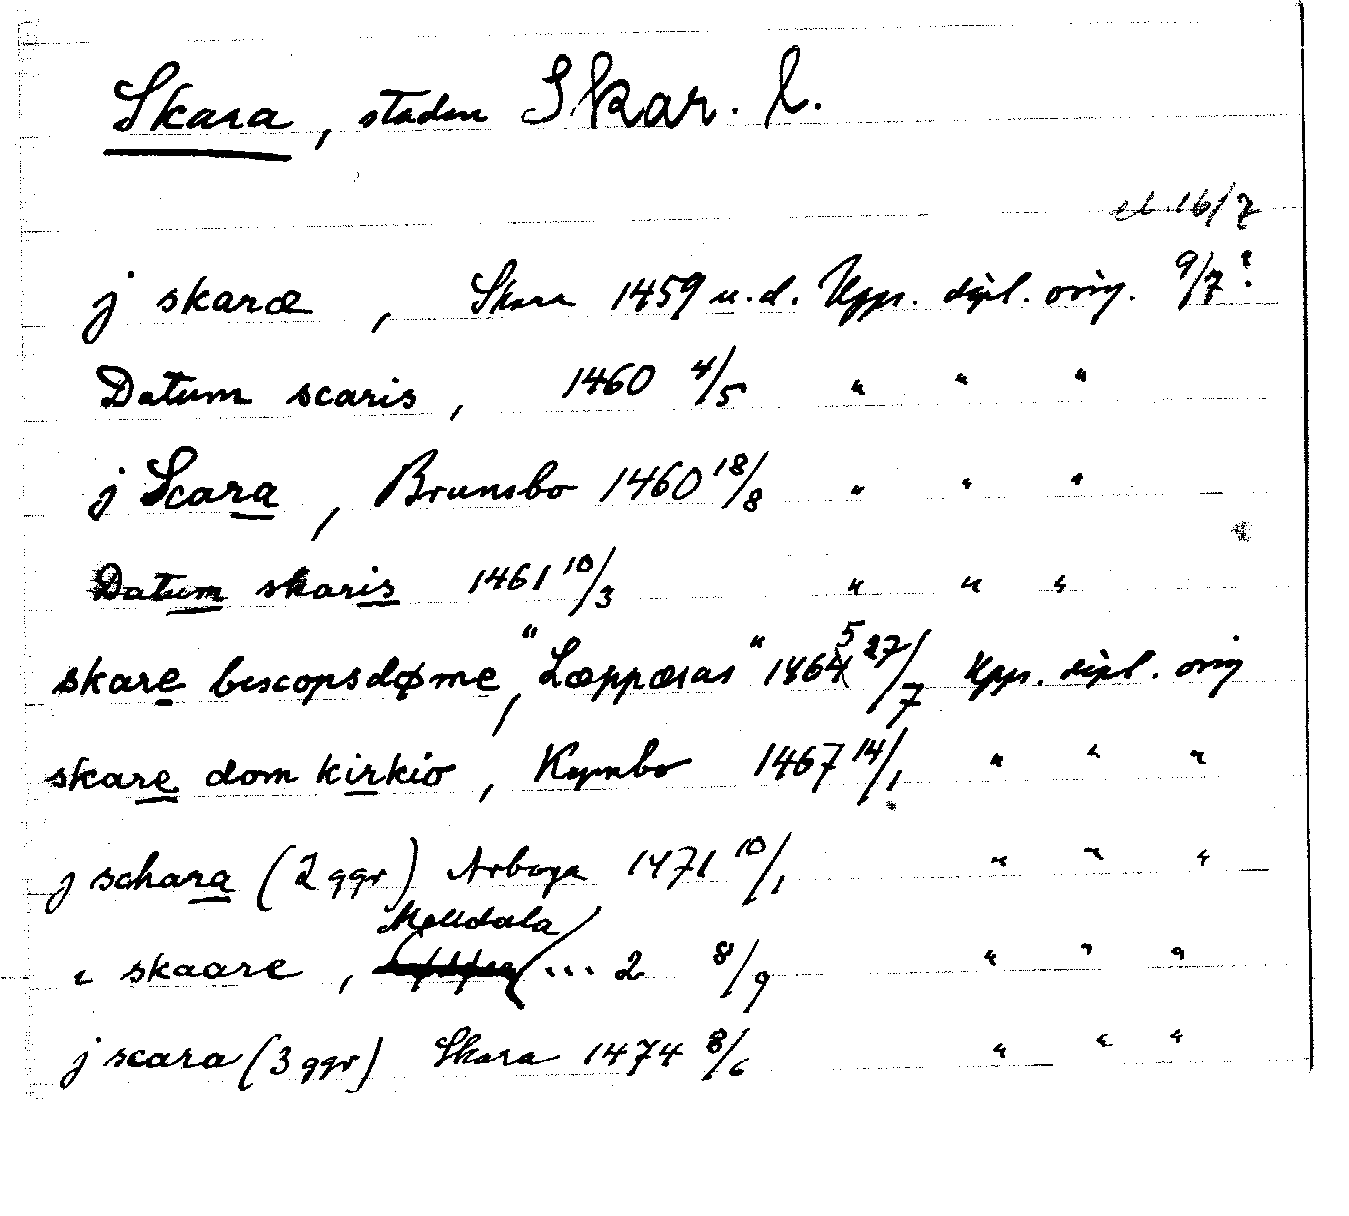 Skara, staden Skar. l.
el. 16/7
j skaræ, Skara 1459 u.d. Upps. dipl. orig. 9/7?
Datum scaris, 1460 4/5 " " "
j Scara, Brunsbo 1460 18/8 " " "
Datum skaris 1461 10/3 " " "
skare bescopsdøme, "Læppæsas" 1465 27/7 Upps. dipl. orig
skare dom kirkio, Kymbo 1467 14/1 " " "
j schara (2 ggr) Arboga 1471 10/1 " " "
Melldala
i skaare, ... 2 8/9 " " "
j scara (3 ggr) Skara 1474 8/6 " " "